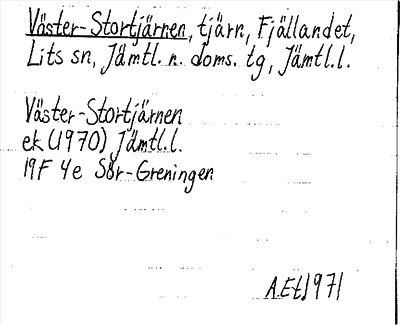 Väster-Stortjärnen, tjärn, Fjällandet,
Lits sn, Jämtl. n. doms. tg, Jämtl.l.
Väster-Stortjärnen
ek (1970) Jämtl.l.
19F 4e Sör-Greningen
A.Et 1971